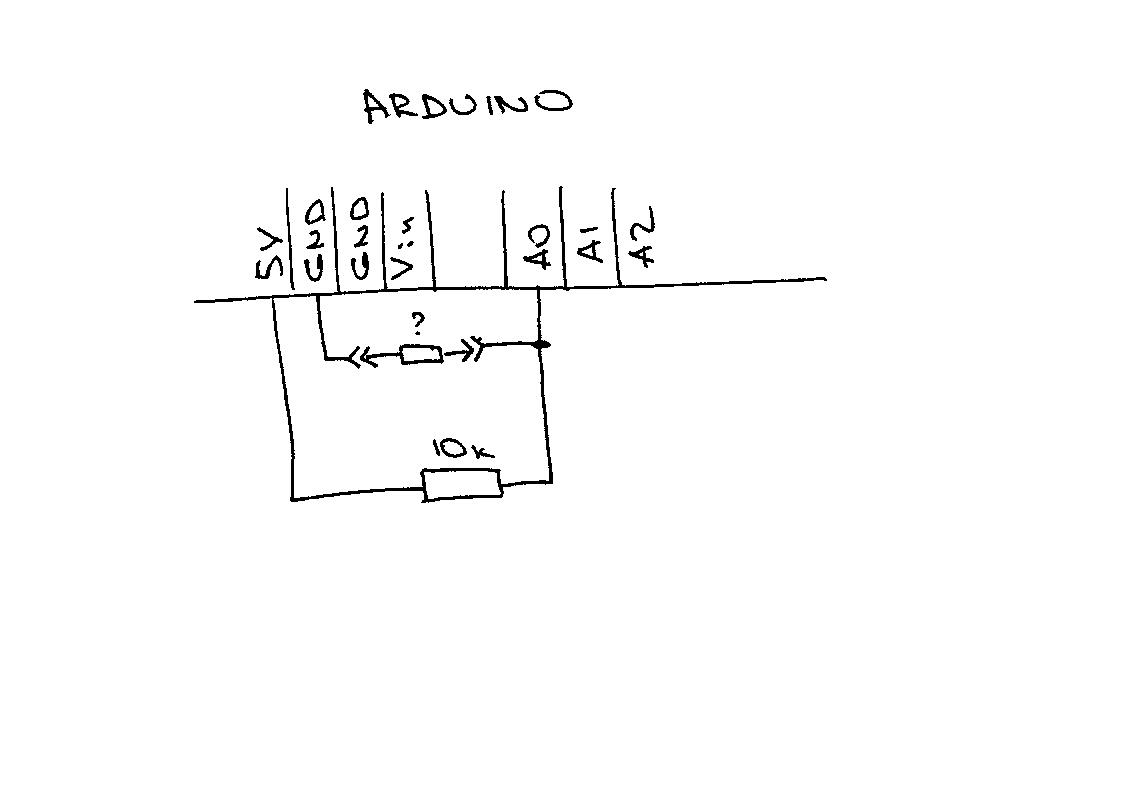 ARDUINO
5V GND GND Vin A0 A1 A2
?
10k